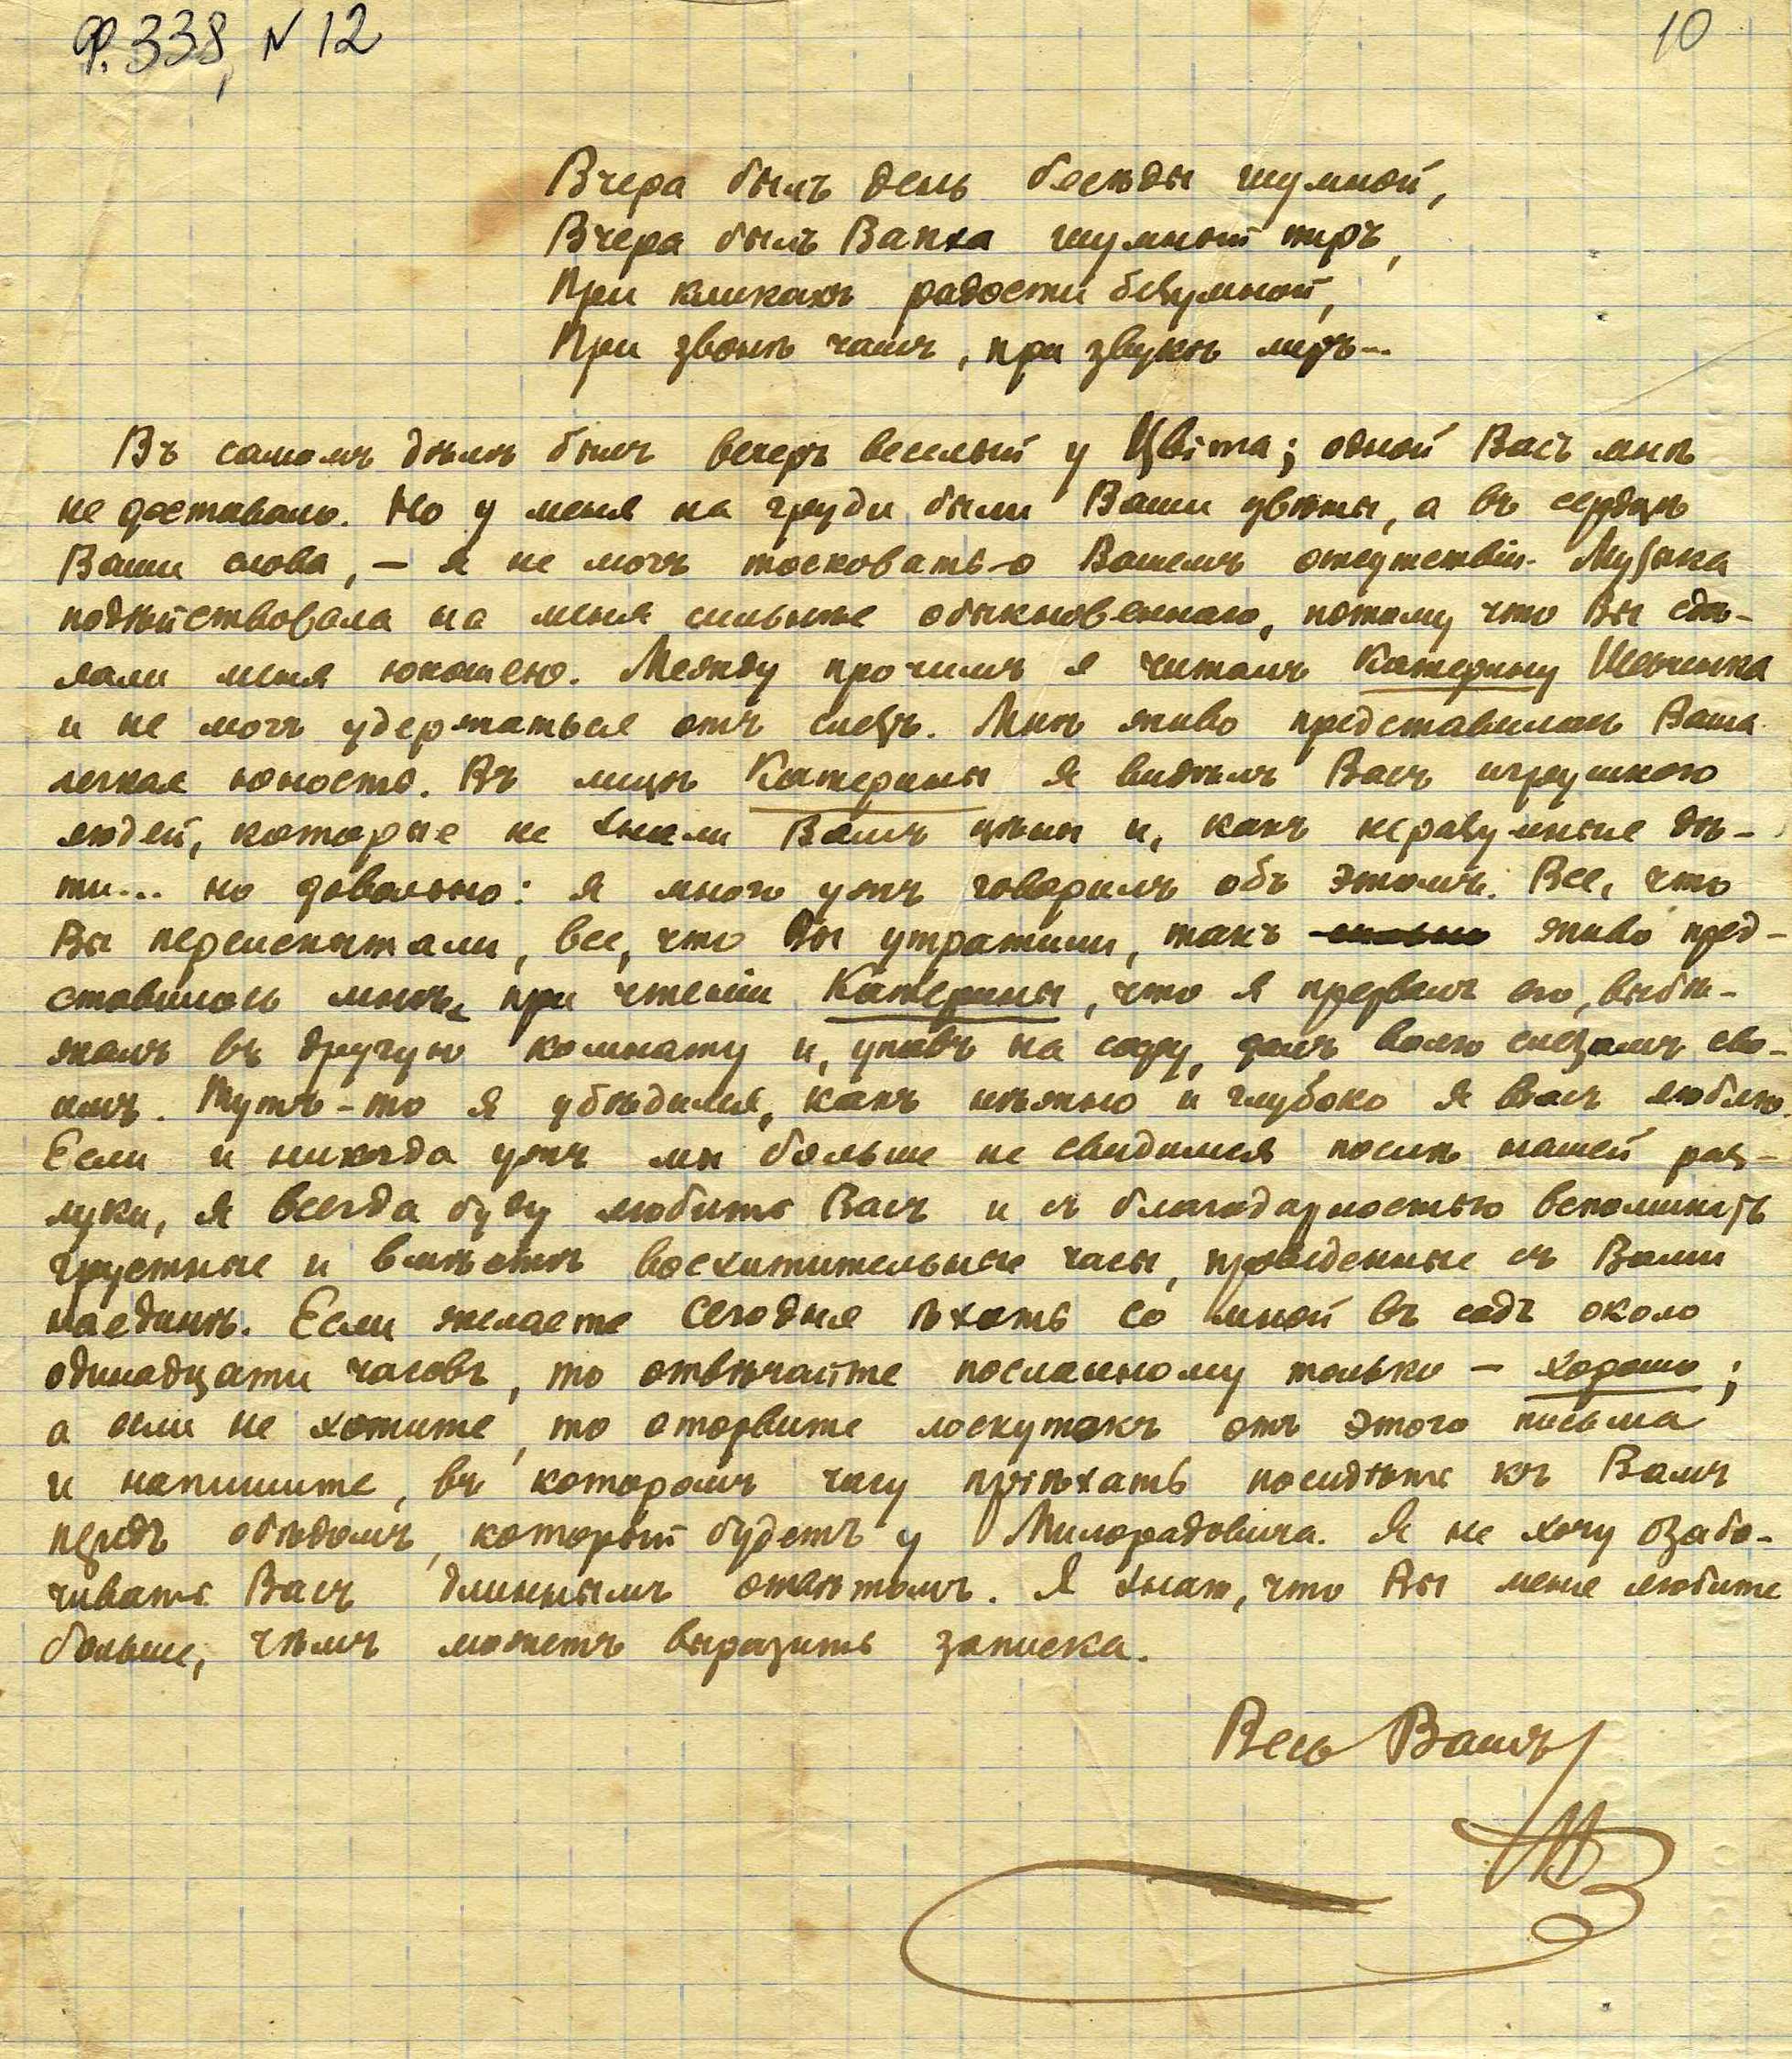 Ф. 338, N 12
10
Вчера былъ день бесѣды шумной,
Вчера былъ Вакха шумный пиръ,
При кликахъ радости безумной,
При звонѣ чашъ, при звукѣ лиръ...
Въ самомъ дѣлѣ былъ вечеръ веселый у Цвіта; одной Васъ мнѣ
не доставало. Но у меня на груди были Ваши цвѣты, а въ сердцѣ
Ваши слова, – я не могъ тосковать о Вашемъ отсутствіи. Музыка
подѣйствовала на меня сильнѣе обыкновеннаго, потому что Вы сдѣ-
лали меня юношею. Между прочимъ я читалъ Катерину Шевченка
и не могъ удержаться отъ слезъ. Мнѣ живо представилась Ваша
легкая юность. Въ лицѣ Катерины я видѣлъ Васъ игрушкою
людей, которые не знали Вамъ цѣны и, какъ неразумные дѣ-
ти... но довольно: я много ужъ говорилъ объ этомъ. Все, что
Вы переиспытали, все, что Вы утратили, такъ живо пред-
ставилось мнѣ при чтеніи Катерины, что я прервалъ его, выбѣ-
жалъ въ другую комнату и, упавъ на софу, далъ волю слезамъ сво-
имъ. Тутъ-то я убѣдился, какъ нѣжно и глубоко я Васъ люблю.
Если и никогда ужъ мы больше не свидимся послѣ нашей раз-
луки, я всегда буду любить Васъ и съ благодарностью вспоминать
грустные и вмѣстѣ восхитительные часы, проведенные съ Вами
наединѣ. Если желаете сегодня ѣхать со мной въ садъ около
одинадцати часовъ, то отвѣчайте посланному только – хорошо;
а если не хотите, то оторвите лоскутокъ отъ этого письма
и напишите, въ которомъ часу пріѣхать посидѣть къ Вамъ
передъ обѣдомъ, который будетъ у Милорадовича. Я не хочу озабо-
чивать Васъ длиннымъ отвѣтомъ. Я знаю, что Вы меня любите
больше, чѣмъ можетъ выразить записка.
Весь Вашъ